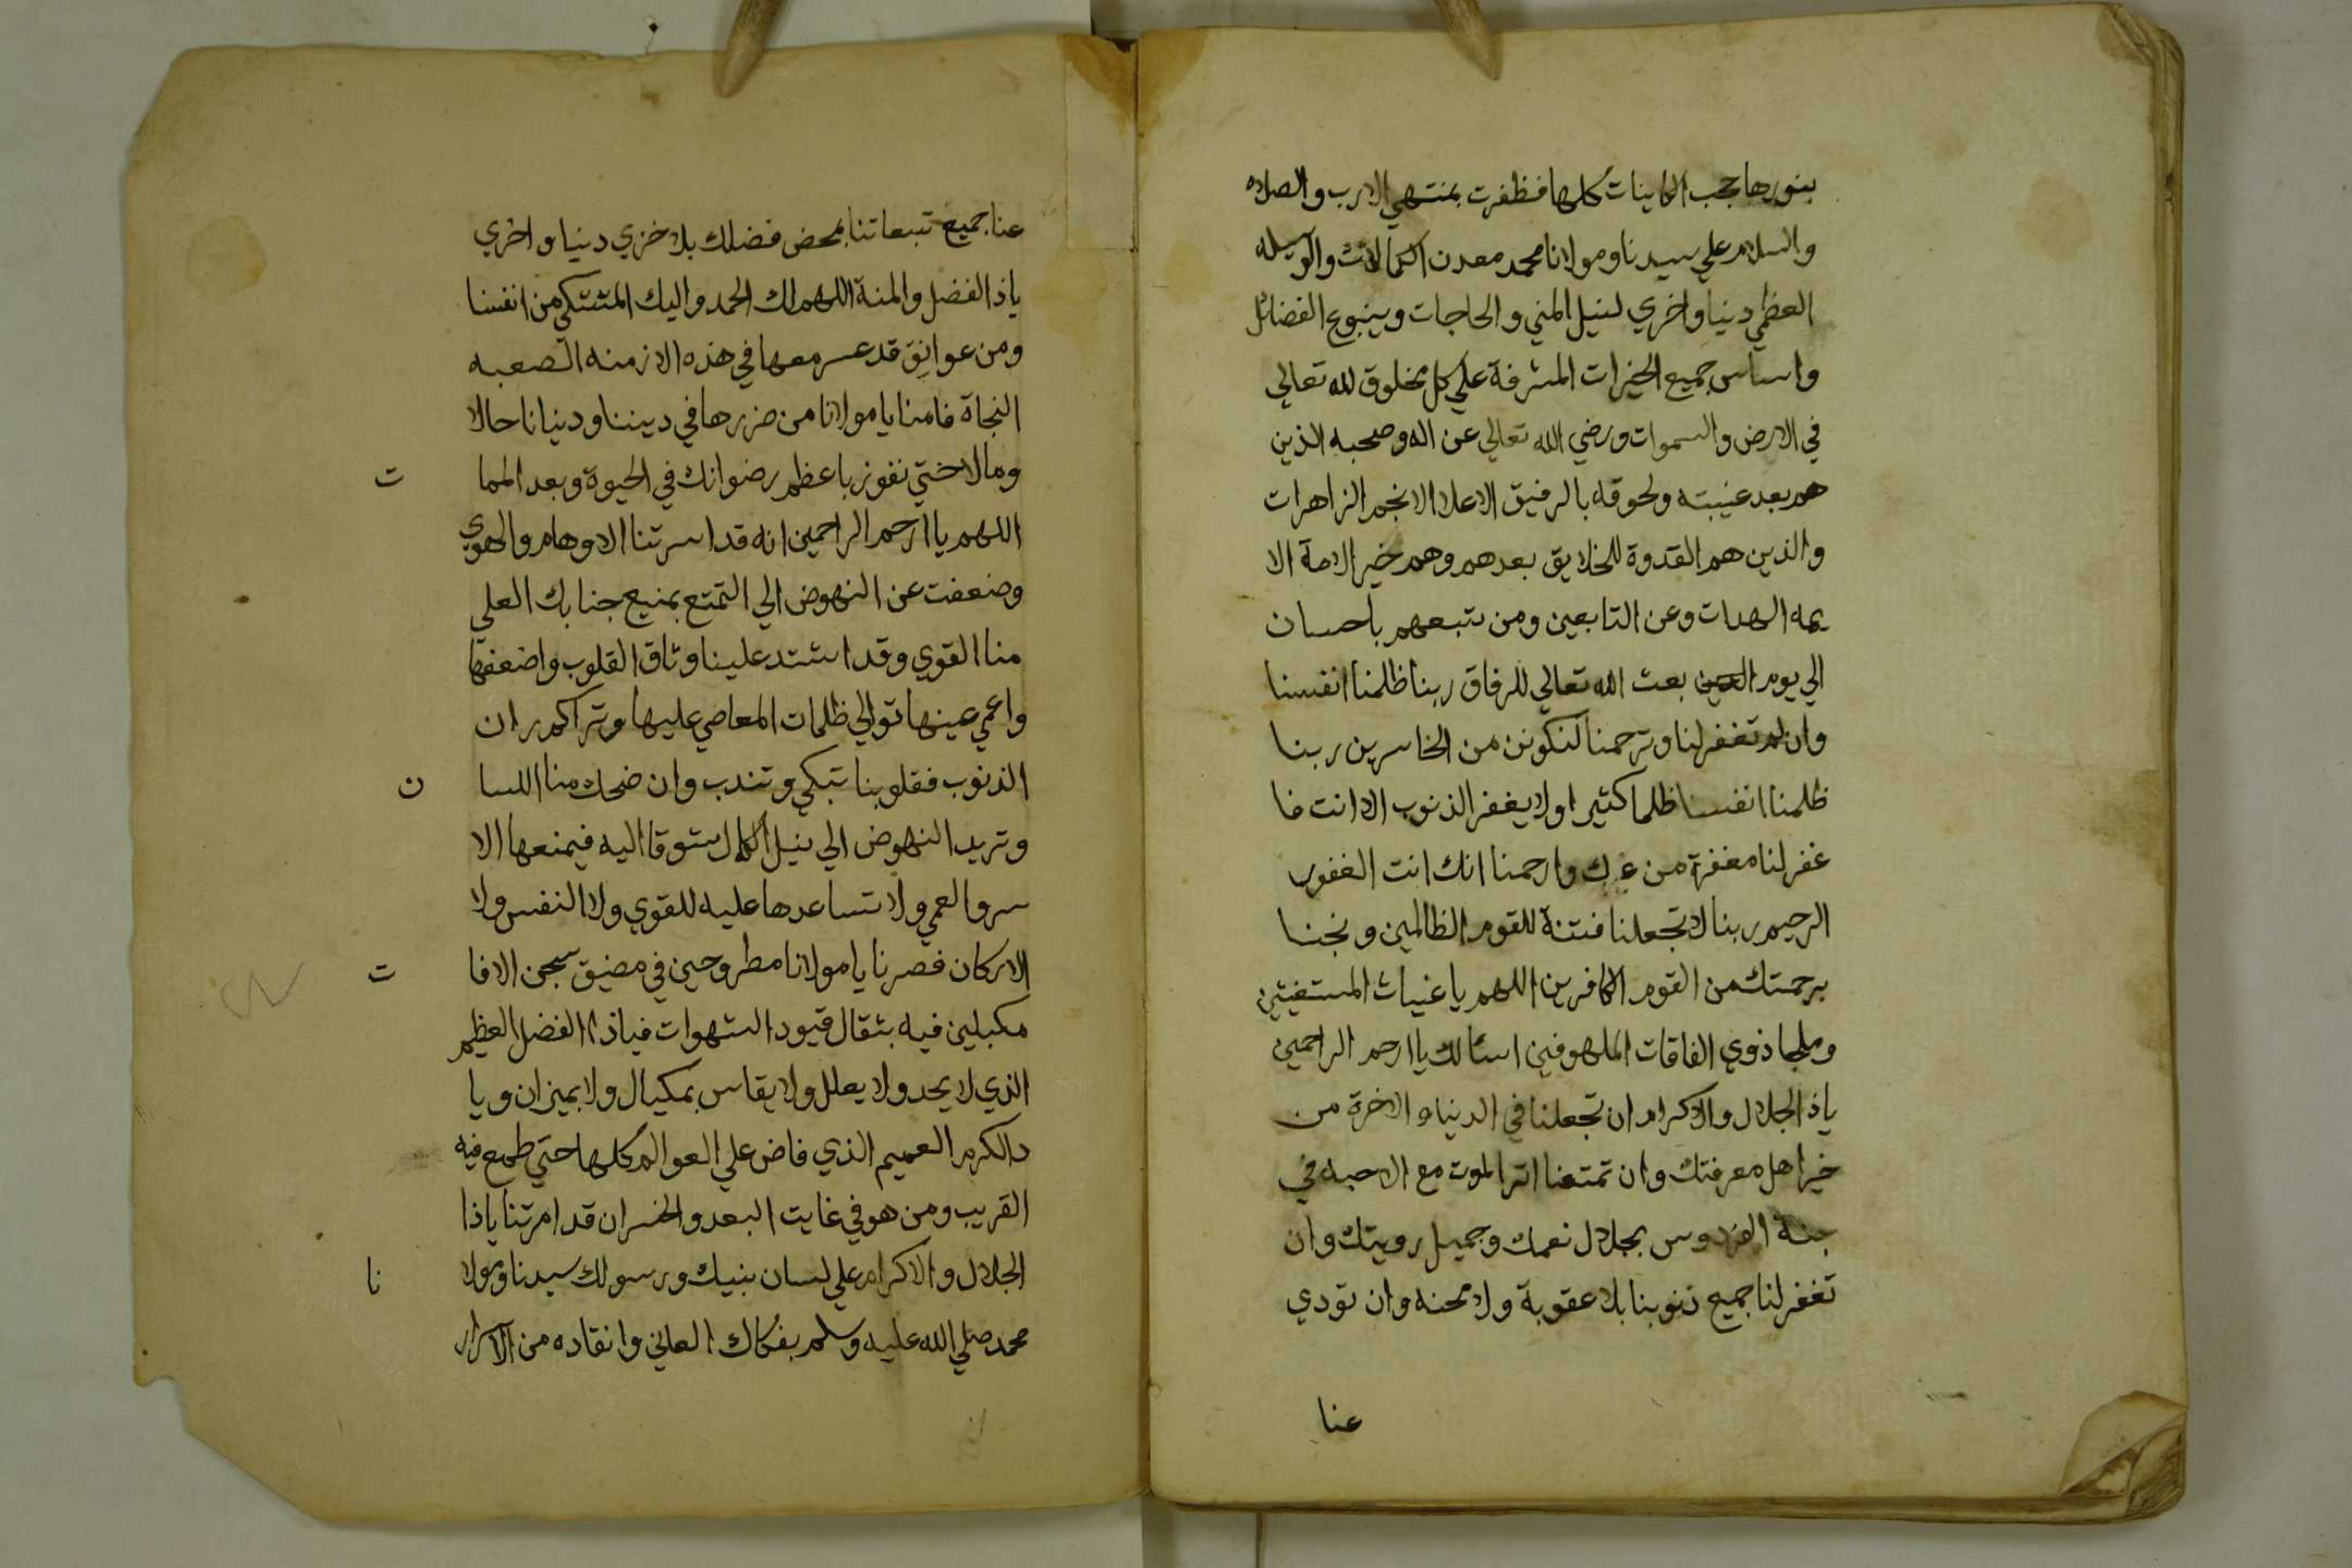 بنورها حجب الكاينات كلها فظفرت بمنتهي الارب والصلاه
والسلام علي سيدنا ومولانا محمد معدن الكمالات والوسيله
العظمي دنيا واخري لنيل المني والحاجات وينبوع الفضائل
واساس جميع الخيرات المشرفة علي كل مخلوق لله تعالي
في الارض والسموات ورضي الله تعالي عن اله وصحبه الذين
هم بعد غيبته ولحوقه بالرفيق الاعلا الانجم الزاهرات
والذين هم القدوة للخلايق بعدهم وهم خير الامة الا
يمه الهدات وعن التابعين ومن تتبعهم باحسان
الي يوم بعث الله تعالي للرفاق ربنا ظلمنا انفسنا
وان لم تغفر لنا وترحمنا لنكونن من الخاسرين ربنا
ظلمنا انفسنا ظلما كثيرا ولا يغفر الذنوب الا انت فا
غفر لنا مغفرة من عندك وارحمنا انك انت الغفور
الرحيم ربنا لا تجعلنا فتنة للقوم الظالمين ونجنا
برحمتك من القوم الكافرين اللهم يا غياث المستغيثين
وملجا ذوي الفاقات الملهوفين اسئالك يا ارحم الراحمين
ياذ الجلال والاكرام ان تجعلنا في الدنيا والاخرة من
خير اهل معرفتك وان تمتعنا اثر الموت مع الاحبه في
جنة الفردوس بجلال نعمك وجميل رويتك وان
تغفر لنا جميع ذنوبنا بلا عقوبة ولا محنه وان تودي
عنا
عنا جميع تبعاتنا بمحض فضلك بلا خزي دنيا واخري
ياذ الفضل والمنة اللهم لك الحمد واليك المشتكي من انفسنا
ومن عوايق قد عسر معها في هذه الازمنه الصعبه
النجاة فامنا يا مولانا من ضررها في ديننا ودنيانا حالا
ومالا ختي نفوز باعظم رضوانك في الحيوة وبعد المما ت
اللهم يا ارحم الراحمين انه قد اسرتنا الاوهام والهوي
وضعفت عن النهوض الي التمتع بمنيع جنابك العلي
منا القوي وقد اشتد علينا وثاق القلوب واضعفها
واعمي عينها توالي ظلمات المعاصي عليها وتراكم ران
الذنوب فقلوبنا تبكي وتندب وان ضحك منا اللسا ن
وتريد النهوض الي نيل الكمال شوقا اليه فيمنعها الا
سر والعمي ولا تساعدها عليه للقوي ولا النفس ولا
الاركان فصرنا يا مولانا مطروحين في مضيق سجن الافا ت
مكبلين فيه بثقال قيود الشهوات فياذا الفضل العظيم
الذي لا يحد ولا يعلل ولا يقاس بمكيال ولا بميزان ويا
ذالكرم العميم الذي فاض علي العوالم كلها حتي طمع فيه
القريب ومن هو في غايت البعد والخسران قد امرتنا ياذا
الجلال والاكرام علي لسان بنيك ورسولك سيدنا ومولا نا
محمد صلي الله عليه وسلم بفكاك العاني وانقاده من